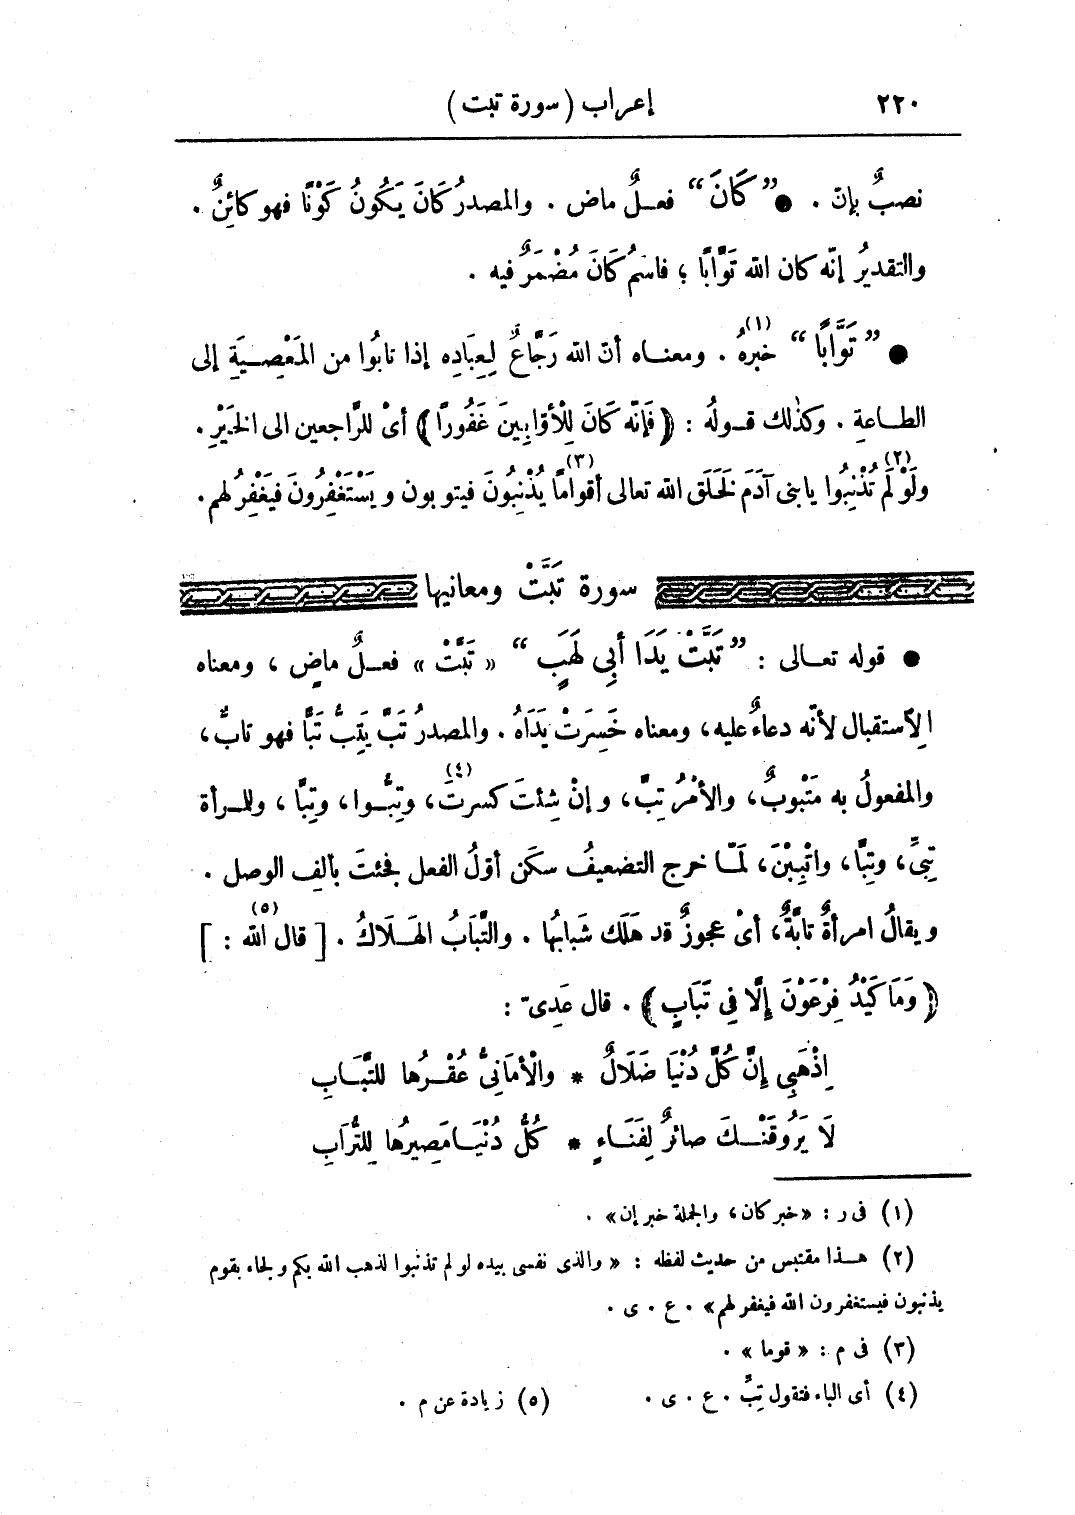 ٢٢٠ إعراب ( سورة تبت )
نصبٌ بإنّ . ● ”كَانَ“ فعـلٌ ماض . والمصدرُ كَانَ يَكُونُ كَوْنًا فهو كائِنٌ .
والتقديرُ إنّه كان الله تَوَّابًا ؛ فاسمُ كَانَ مُضْمَرٌ فيه .
● ”تَوَّابًا“ خبرهُ(١) . ومعنـاه أنّ الله رَجَّاعٌ لِعِبَادِه إذا تابُوا من المَعْصِـيَةِ إلى
الطـاعةِ . وكذلك قـولُه : ﴿فَإِنّه كَانَ لِلْأوّابِينَ غَفُورًا﴾ أىْ للرَّاجعين الى الخَيْرِ .
ولَوْ لَم(٢) تُذْنِبُوا يابنى آدَمَ لَخَلَق الله تعالى أقوامًا(٣) يُذْنِبُونَ فيتوبون ويَسْتَغْفِرُونَ فيَغْفِرُ لهم .
سورة تَبَّتْ ومعانيها
● قوله تعـالى : ”تَبَّتْ يَدَا أَبِي لَهَبٍ“ « تَبَّتْ » فعـلٌ ماضٍ ، ومعناه
الِاستقبال لأنّه دعاءٌ عليه، ومعناه خَسِرَتْ يَدَاهُ . والمصدرُ تَبَّ يَتِبُّ تَبًّا فهو تابٌّ ،
والمفعولُ به مَتْبوبٌ، والأمْرُ تِبَّ، وإنْ شِئتَ كسرتَ(٤)، وتِبُّـوا، وتِبَّا ، وللـرأة
تِبِّى، وتِبَّا، واتْبِبْنَ، لَمّـا خرج التضعيفُ سكَن أوّلُ الفعل فجئتَ بألف الوصل .
ويقالُ امرأةٌ تابَّةٌ، أىْ عجوزٌ قد هَلَك شَبابُها . والتَّبَابُ الهَـلَاكُ . [ قال الله(٥) : ]
﴿وَمَا كَيْدُ فِرْعَوْنَ إِلَّا فِى تَبَابٍ﴾ . قال عَدِىّ :
اِذْهَبِى إنَّ كُلَّ دُنْيَا ضَلَالٌ * والْأمَانِىُّ عُقْـرُها للتَّبَـابِ
لَا يَرُوقَنْـكَ صائرٌ لِفَنَـاءٍ * كُلُّ دُنْيَـا مَصِيرُها لِلتُّرَابِ
(١) فى ر : «خبر كان، والجملة خبر إن» .
(٢) هـذا مقتبس من حديث لفظه : « والذى نفسى بيده لو لم تذنبوا لذهب الله بكم ولجاء بقوم
يذنبون فيستغفرون الله فيغفر لهم» . ع . ى .
(٣) فى م : « قوما » .
(٤) أى الباء فتقول تِبِّ . ع . ى . (٥) زيادة عن م .